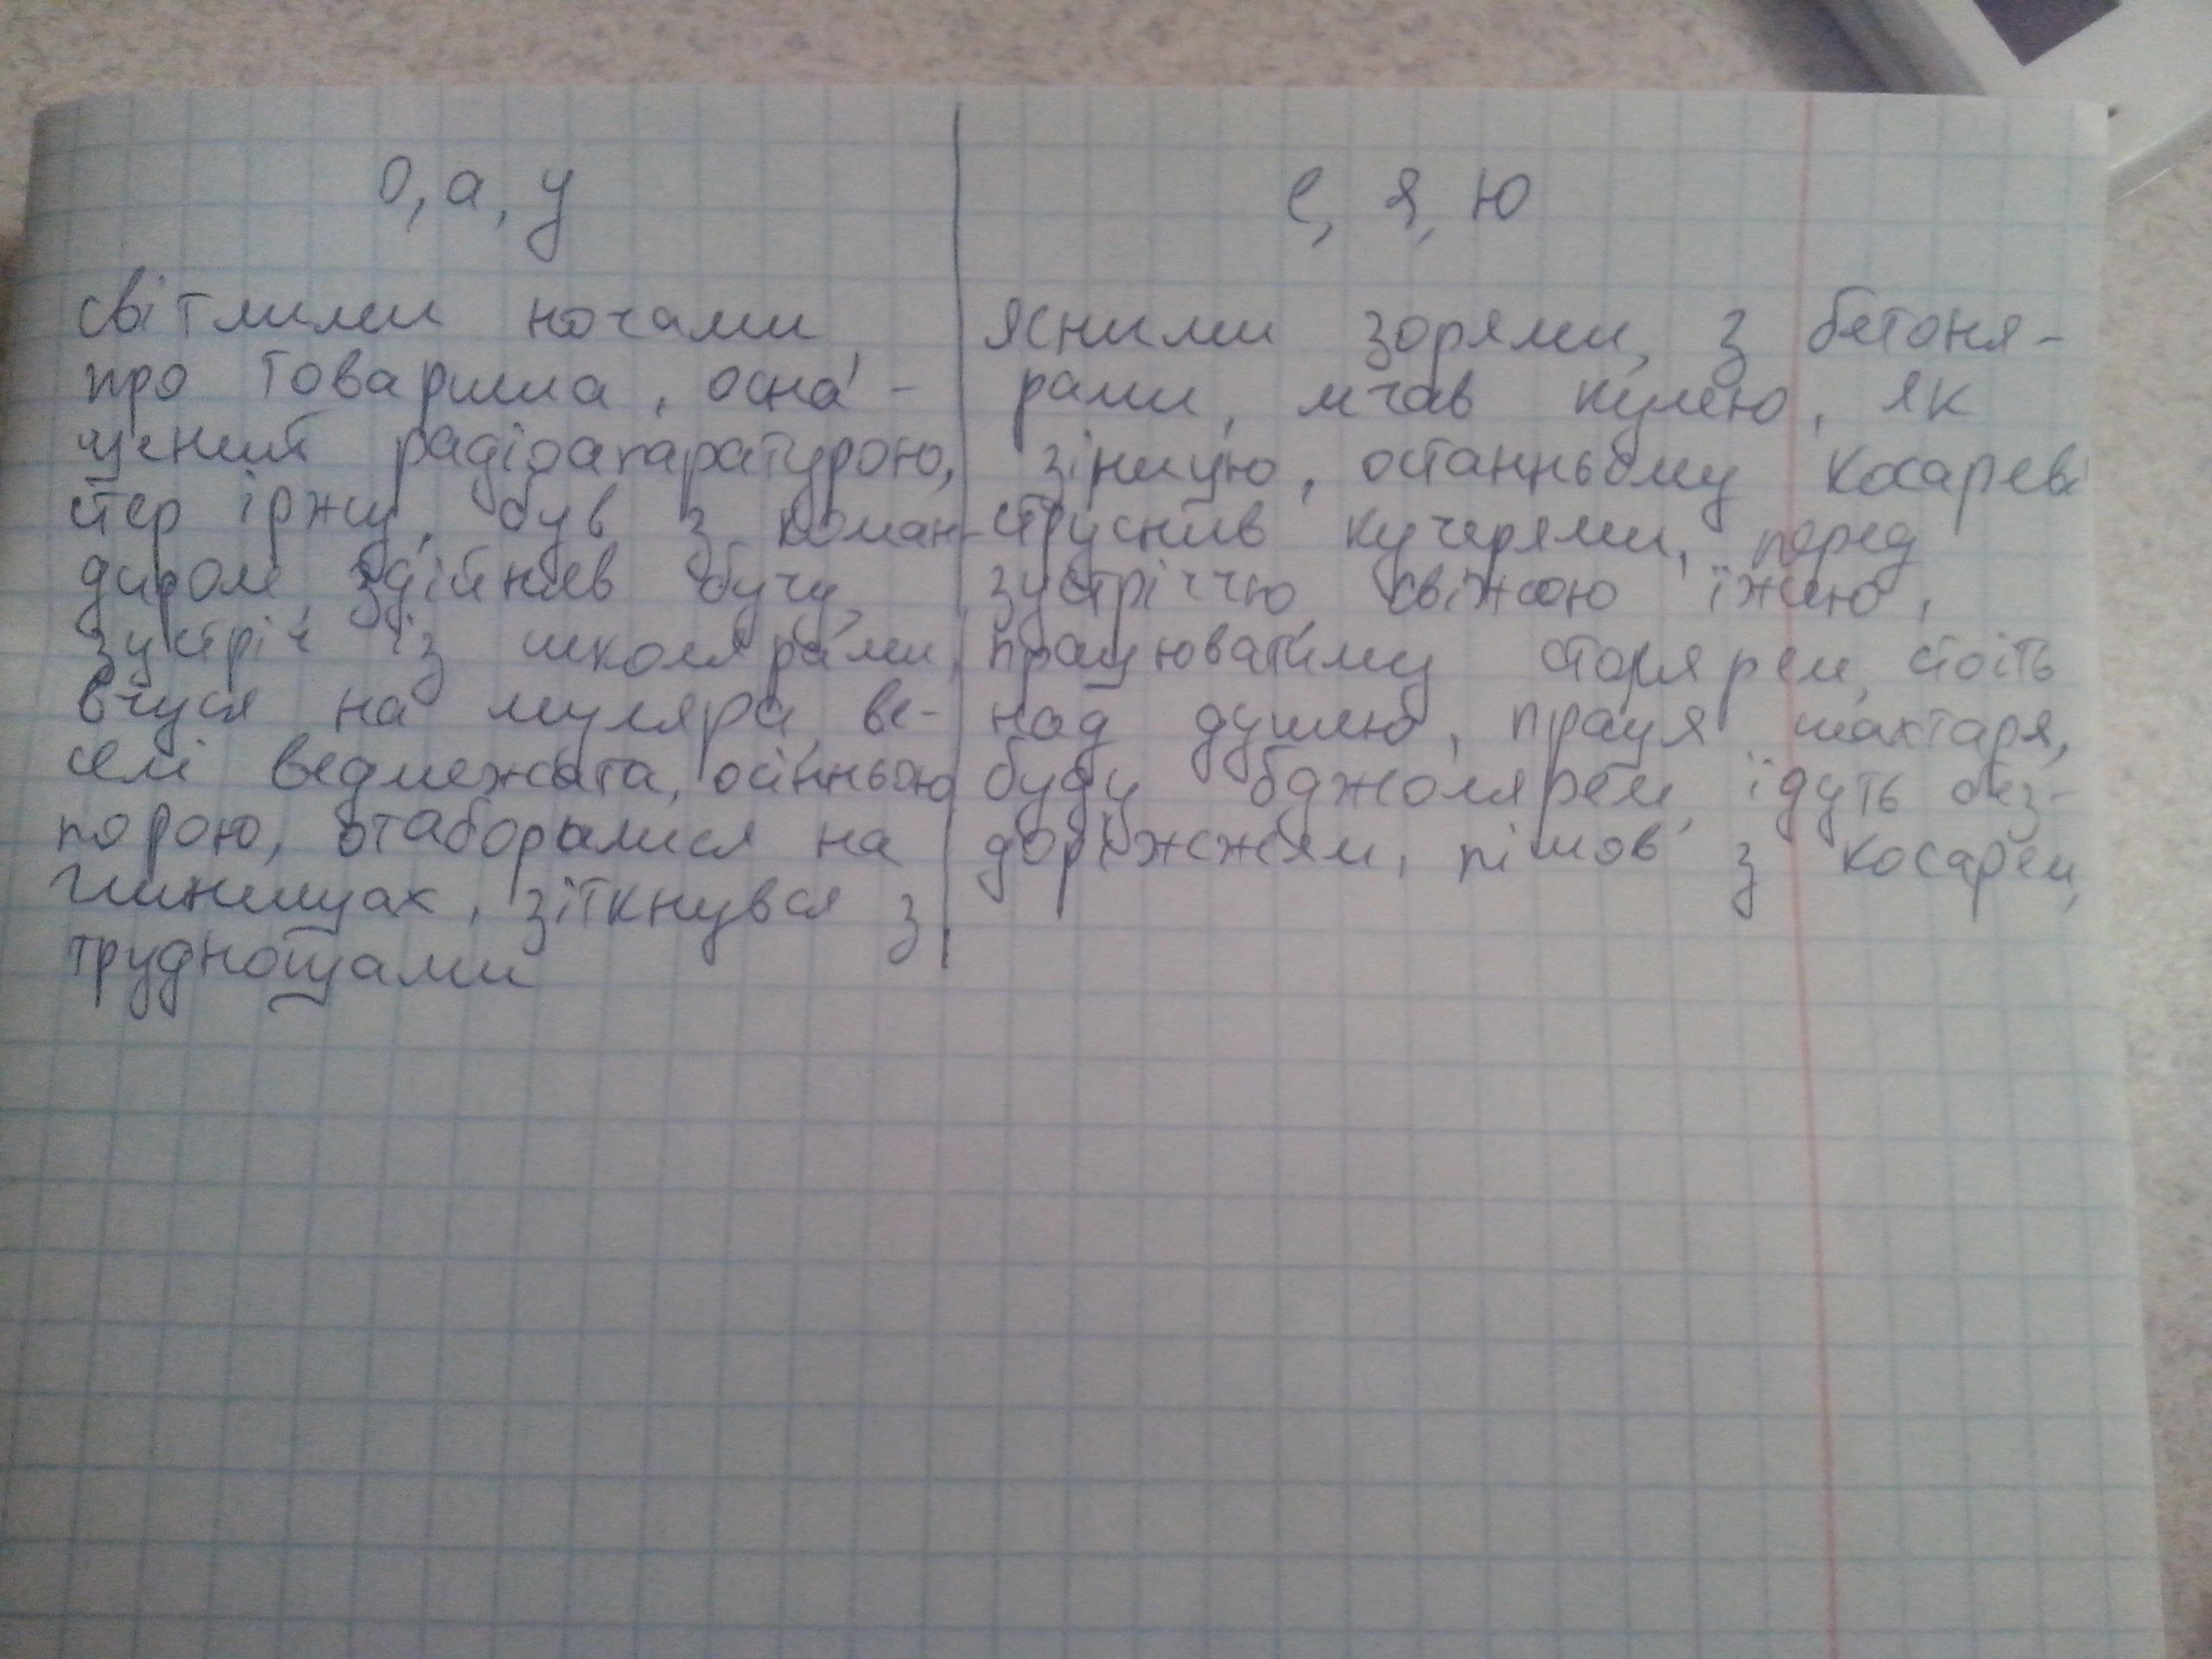 о, а, у
світлими ночами,
про товариша, осна-
щений радіоапаратурою,
стер іржу, був з коман-
диром, здійняв бучу,
зустріч із школярами,
вчуся на муляра, ве-
селі ведмежата, осінньою
порою, отаборилися на
глинищах, зіткнувся з
труднощами
е, я, ю
ясними зорями, з бетоня-
рами, мчав кулею, як
зіницю, останньому косареві
струснив кучерями, перед
зустріччю, свіжою їжею,
працюватиму столярем, стоїть
над душею, праця шахтаря,
буду бджолярем, їдуть без-
доріжжям, пішов з косарем,